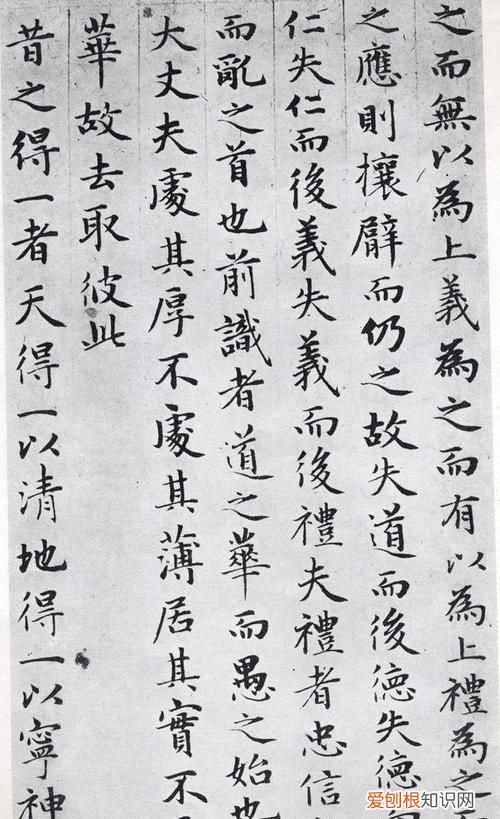 之而無以為上義為之而有以為上禮為之
之應則攘臂而仍之故失道而後德失德
仁失仁而後義失義而後禮夫禮者忠信
而亂之首也前識者道之華而愚之始也
大丈夫處其厚不處其薄居其實不
華故去取彼此
昔之得一者天得一以清地得一以寧神
爱刨根知识网